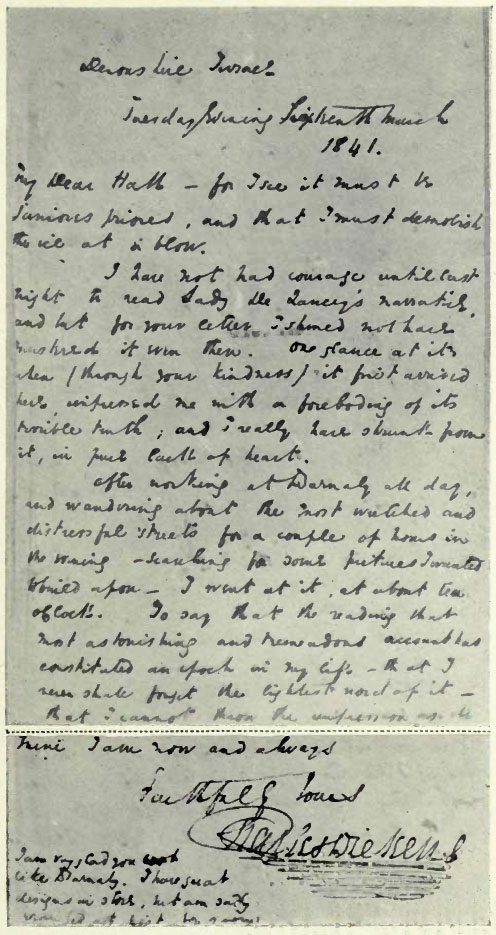 Devonshire Terrace
Tuesday Evening Sixteenth March
1841.
My Dear Hall — for I see it must be
"Junior" priored, and that I must demolish
the ice at a blow.
I have not had courage until last
night to read Lady De Lancey's narrative,
and but for your letter I should not have
mustered it even then. One glance at it
when (through your kindness) it first arrived
here, impressed me with a foreboding of its
terrible truth; and I really have shrunk from
it, in pure lack of heart.
After working at Barnaby all day,
and wandering about the most wretched and
distressful streets for a couple of hours in
the evening — searching for some pictures I wanted
to build upon — I went at it, at about ten
o'Clock. To say that the reading that
most astonishing and tremendous account has
constituted an epoch in my life — that I
never shall forget the lightest word of it —
that I cannot throw the impression aside
mine I am now and always
Faithfully Yours
Charles Dickens
I am very glad you
like Barnaby. I have great
designs in store, but am sadly
at first for